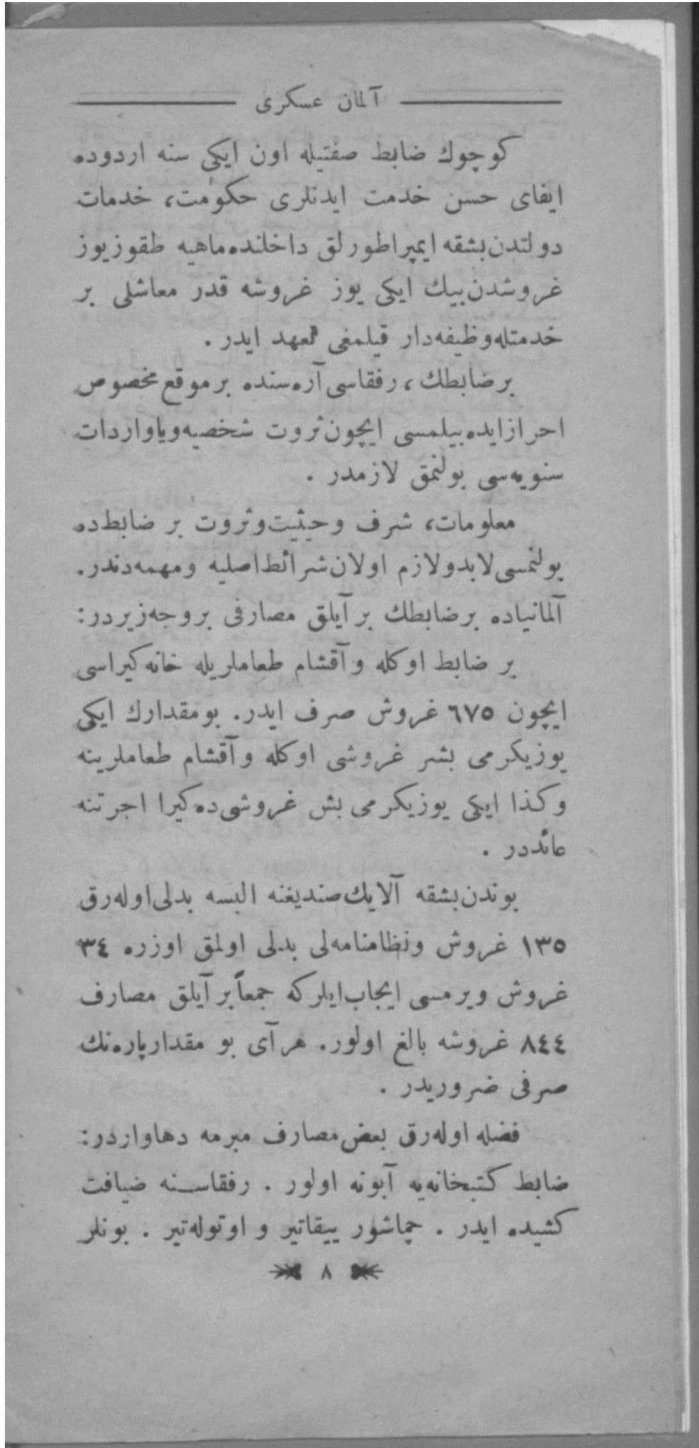 آلمان عسكری
كوچوك ضابط صفتیله اون ایكی سنه اردوده
ایفای حسن خدمت ایدنلری حكومت، خدمات
دولتدن بشقه ایمپراطورلق داخلنده ماهیه طقوزیوز
غروشدن بیك ایكی یوز غروشه قدر معاشلی بر
خدمتله وظیفه‌دار قیلمغی تمعهد ایدر .
بر ضابطك ، رفقاسی آره‌سنده بر موقع مخصوص
احراز ایده بیلمسی ایچون ثروت شخصیه ویا واردات
سنویه‌سی بولنمق لازمدر .
معلومات، شرف وحیثیت وثروت بر ضابطده
بولنمسی لابد ولازم اولان شرائط اصلیه ومهمه‌دندر.
آلمانیاده بر ضابطك بر آیلق مصارفی بر وجه زیردر:
بر ضابط اوكله وآقشام طعاملریله خانه كیراسی
ایچون ٦٧٥ غروش صرف ایدر. بو مقدارك ایكی
یوز یكرمی بشر غروشی اوكله وآقشام طعاملرینه
وكذا ایكی یوز یكرمی بش غروشی ده كیرا اجرتنه
عائددر .
بوندن بشقه آلایك صندیغنه البسه بدلی اوله‌رق
١٣٥ غروش ونظامنامه‌لی بدلی اولمق اوزره ٣٤
غروش ویرمسی ایجاب ایلر كه جمعاً بر آیلق مصارف
٨٤٤ غروشه بالغ اولور. هر آی بو مقدار پاره‌نك
صرفی ضروریدر .
فضله اوله‌رق بعض مصارف مبرمه دها واردر:
ضابط كتبخانه‌یه آبونه اولور . رفقاسنه ضیافت
كشیده ایدر . چماشور ییقاتیر و اوتوله‌تیر . بونلر
٨